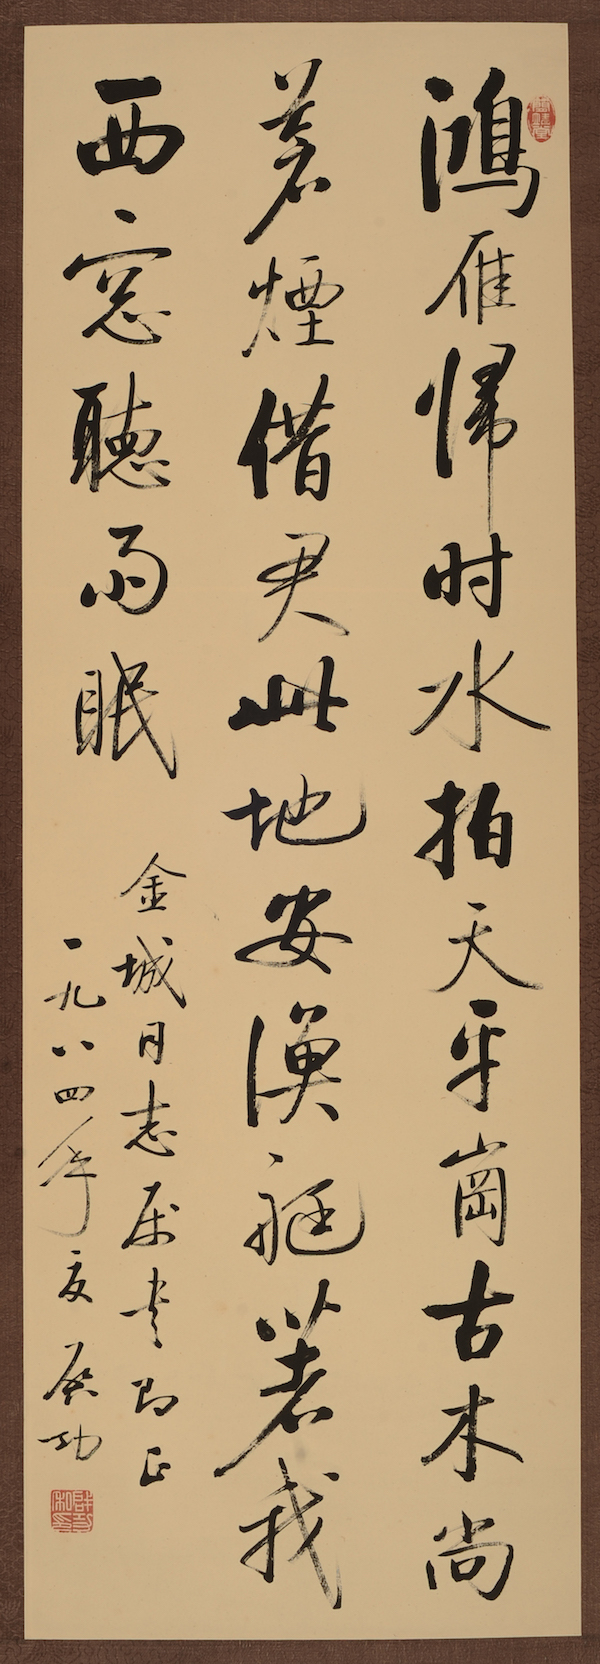 鴻雁歸时水拍天平崗古木尚
蒼煙借君此地安漁艇著我
西窓聴雨眠
金城同志属书即正
一九八四年夏启功